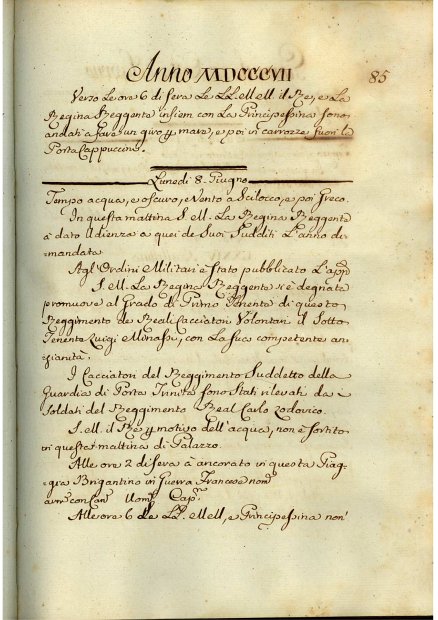 Anno MDCCCVII
85
Verso le ore 6 di sera le LL. MM. il Re, e La
Regina Reggente insiem con La Principessina sono
andati a fare un giro p mare, e poi in carrozze fuori la
Porta Cappuccini.
Lunedì 8. Giugno
Tempo acqua, e oscuro, e Vento a Scilocco, e poi Greco.
In questa mattina S. M. La Regina Reggente
à dato Udienza a quei de Suoi Sudditi L'anno di-
mandata
Agl'Ordini Militari è stato pubblicato L'app.
S. M. La Regina Reggente si è degnata
promuove al Grado di Primo Tenente di questo
Reggimento de Reali Cacciatori Volontari il Sotto
Tenente Luigi Minassi, con La sua competente an-
zianità.
I Cacciatori del Reggimento Suddetto della
Guardia di Porta Trinità sono stati rilevati da i
Soldati del Reggimento Real Carlo Lodovico.
S. M. il Re p motivo dell'acqua, non è sortito
in questa mattina di Palazzo.
Alle ore 2 di sera à ancorato in questa Piag-
gia Brigantino in Guerra Francese nom.
arm. con can. Uom. Cap.
Alle ore 6 Le LL. MM, e Principessina non